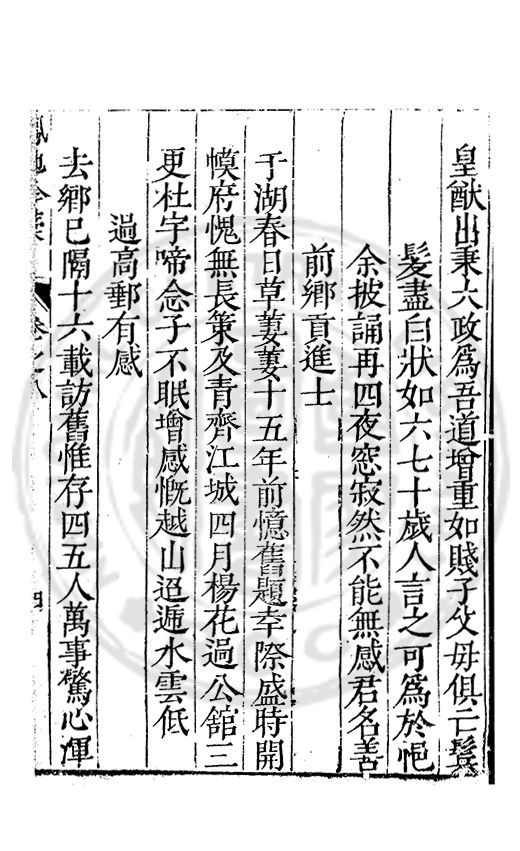 皇猷出秉大政為吾道增重如賤子父毋俱亡鬂
髮盡白狀如六七十歲人言之可為於悒
余披誦再四夜窓寂然不能無感君名善
前鄉貢進士
于湖春日草萋萋十五年前憶舊題幸際盛時開
幙府愧無長策及青齊江城四月楊花過公舘三
更杜宇啼念子不眠增感慨越山迢遞水雲低
過高郵有感
去鄉已隔十六載訪舊惟存四五人萬事驚心渾
卷之八
四